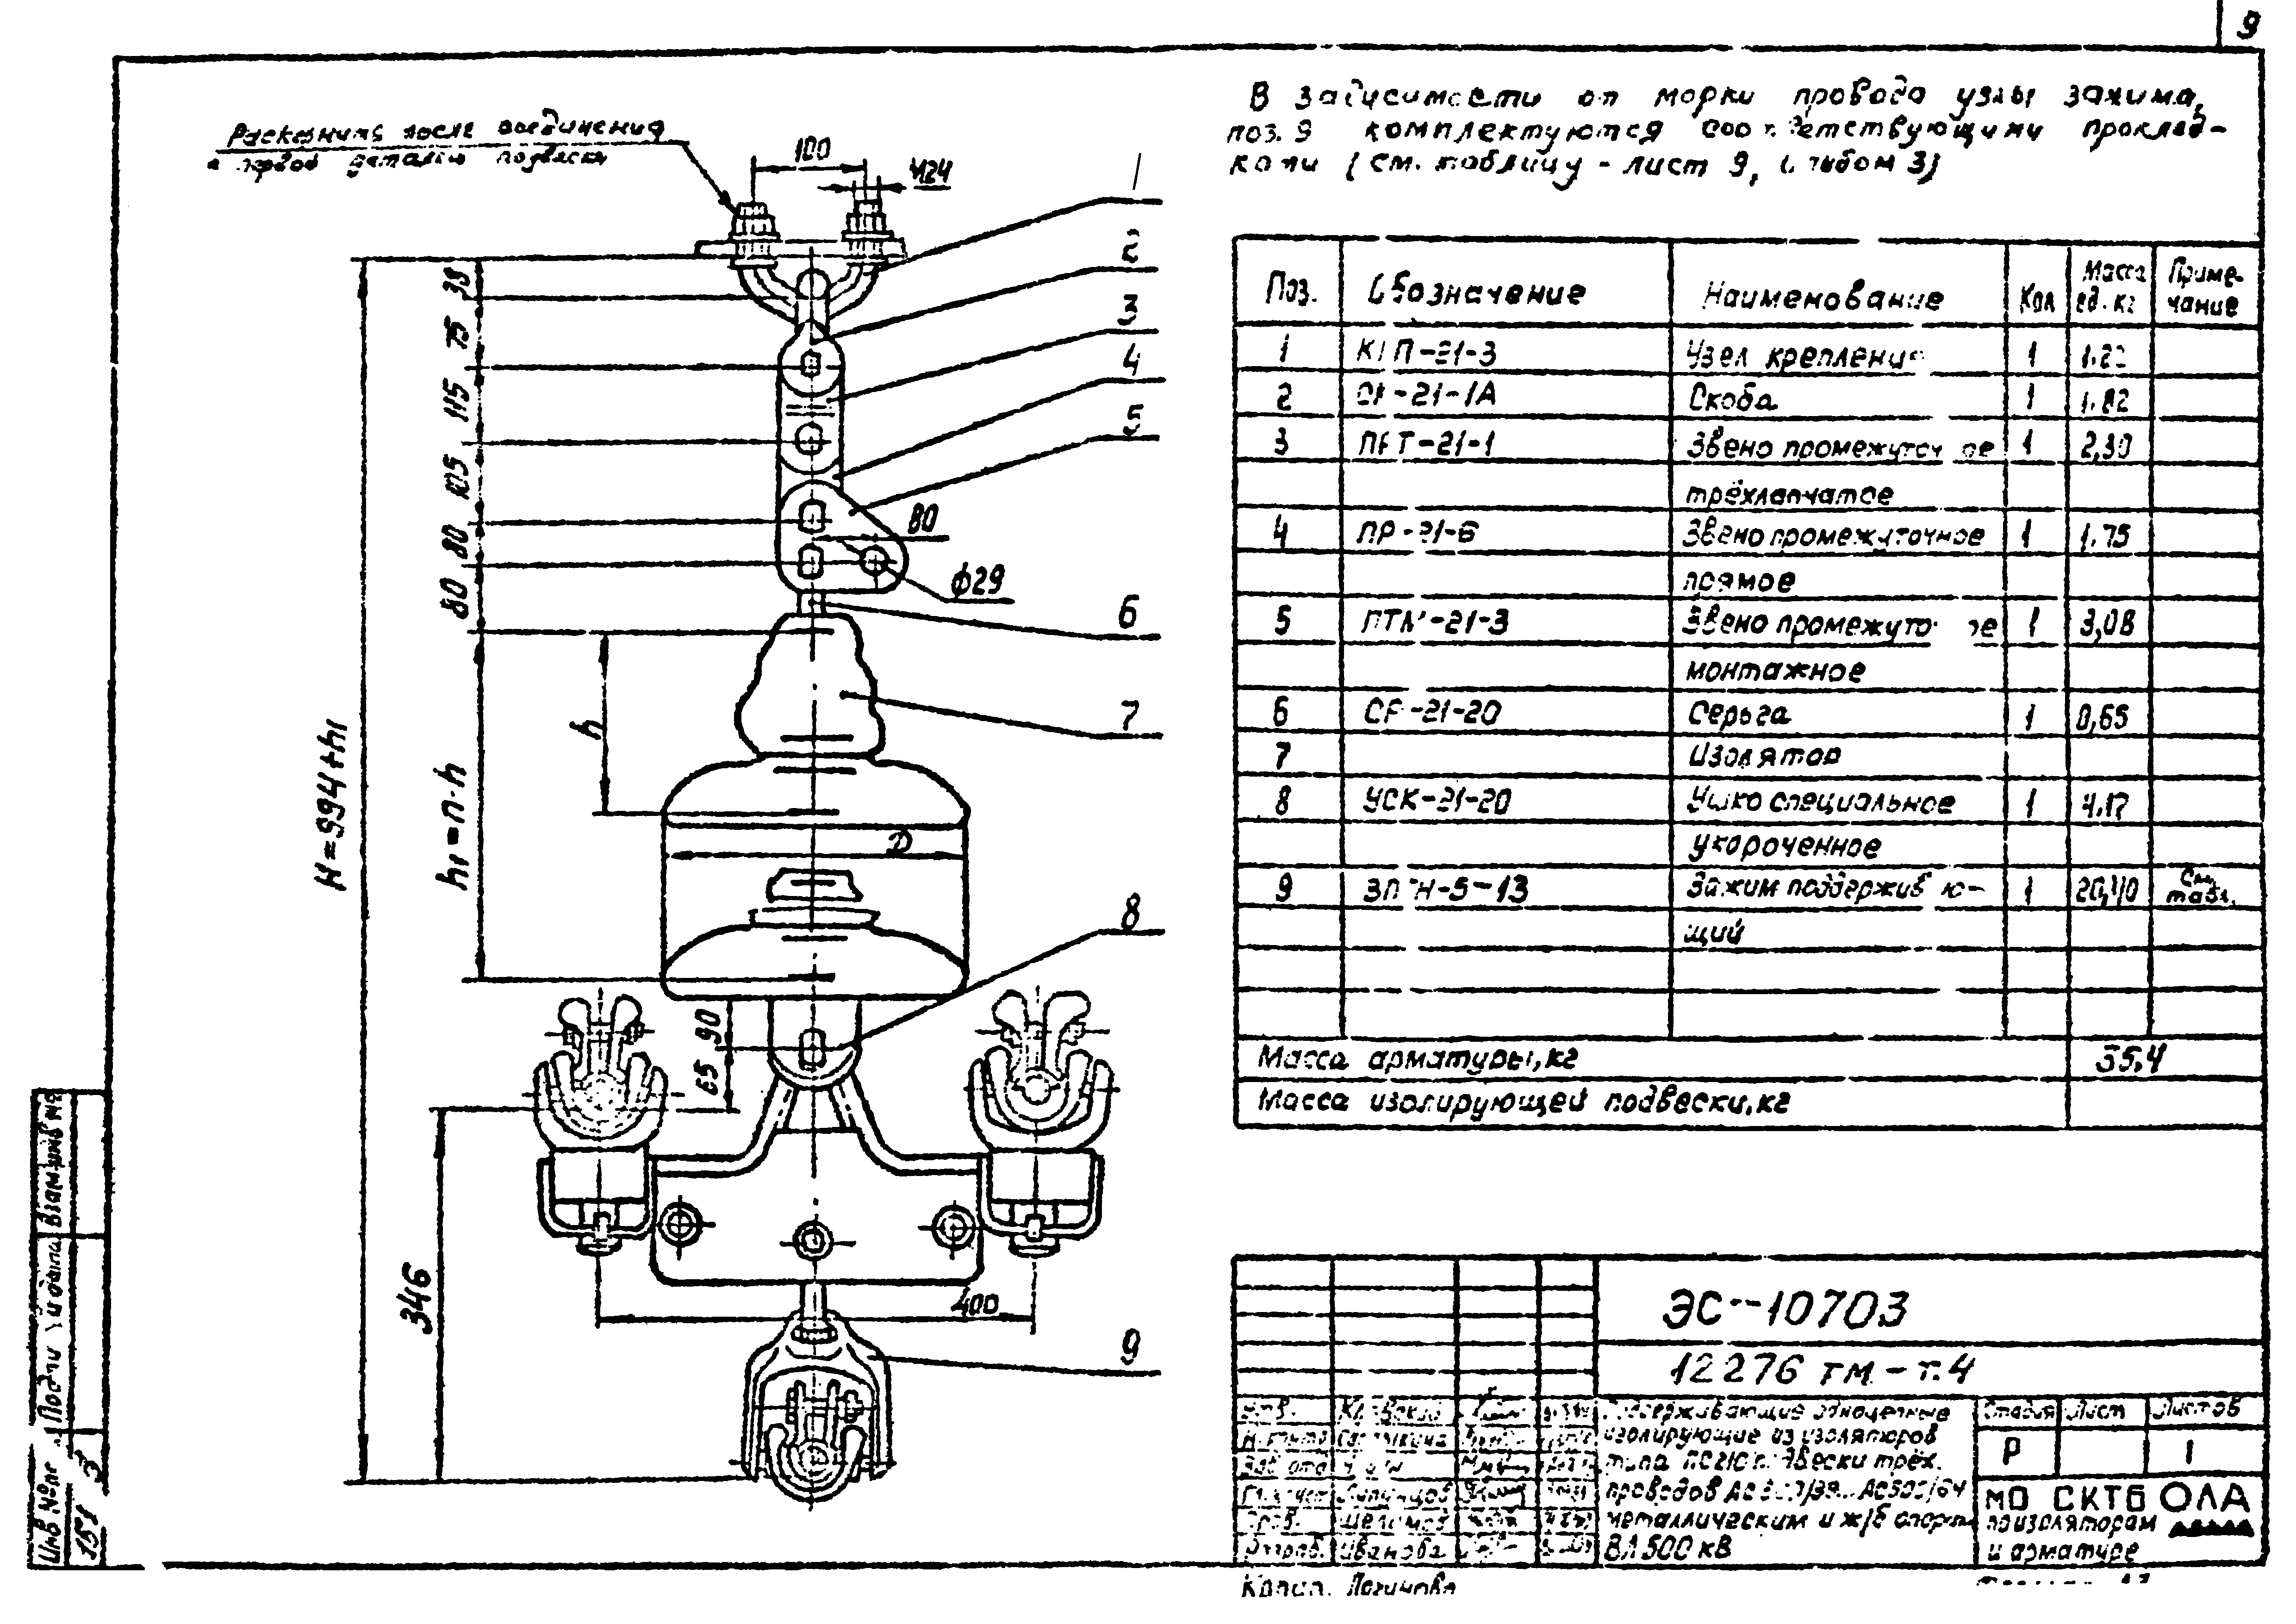 9
В зависимости от марки провода узлы зажима,
поз. 9 комплектуются соответствующими проклад-
ками (см. таблицу - лист 9, альбом 3)
Раскернить после соединения
с первой деталью подвески
100
М24
1
2
3
4
5
80
ф29
6
7
8
9
38
75
115
105
80
80
h
h1=n·h
H=994+h1
D
90
65
346
400
Поз. Обозначение Наименование Кол Масса ед. кг Приме-чание
1 КГП-21-3 Узел крепления 1
2 СК-21-1А Скоба 1 1.82
3 ПРТ-21-1 Звено промежуточное 1 2,30
трёхлапчатое
4 ПР-21-6 Звено промежуточное 1 1.75
прямое
5 ПТМ-21-3 Звено промежуточное 1 3,08
монтажное
6 СР-21-20 Серьга 1 0,65
7 Изолятор
8 УСК-21-20 Ушко специальное 1 4.17
укороченное
9 -5-13 Зажим поддерживаю- 1 См. табл.
щий
Масса арматуры,кг 35,4
Масса изолирующей подвески,кг
ЭС-10703
12276 тм-т.4
Поддерживающие одноцепные
изолирующие из изоляторов
типа подвески трёх
проводов
металлическим и ж/б опорам
ВЛ 500 кВ
Стадия Лист Листов
Р 1
МО СКТБ ОЛА
по изоляторам
и арматуре
Утв.
Н.контр
Разраб. Иванова
Копир. Логинова
Взам инв №
Подп и дата
Инв №